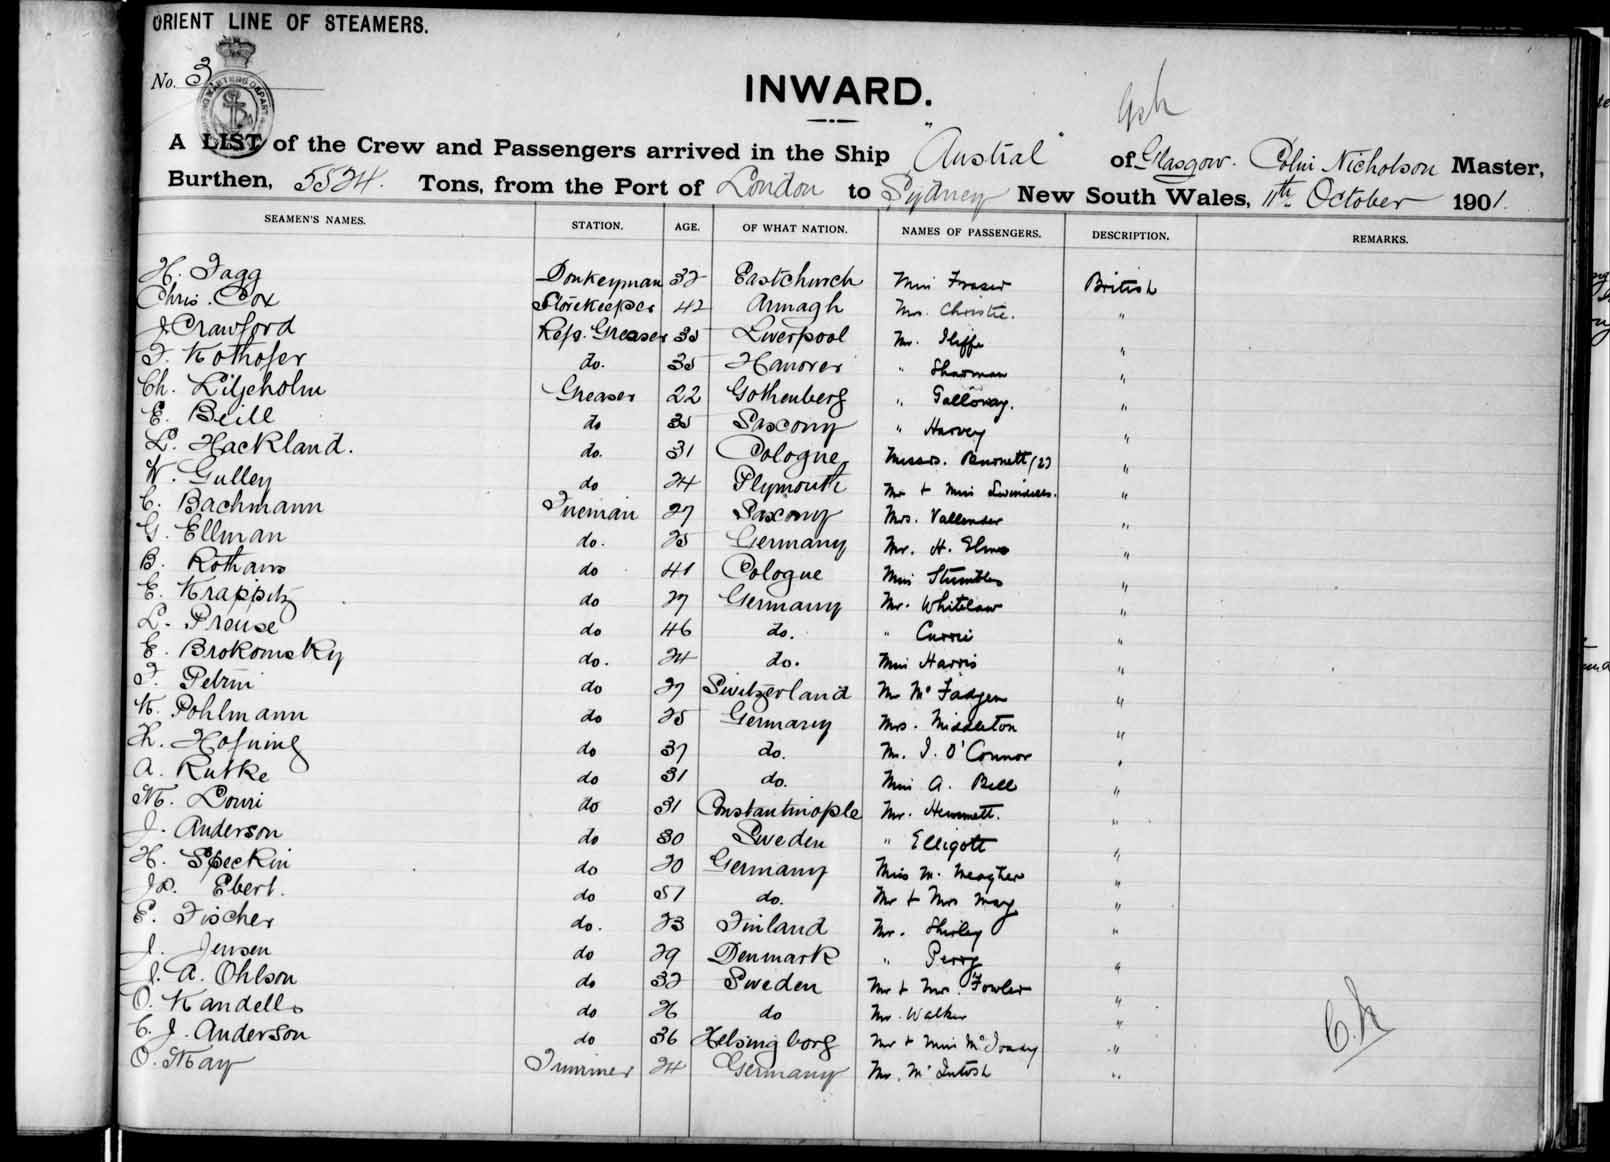 ORIENT LINE OF STEAMERS.
No. 3
INWARD.
A LIST of the Crew and Passengers arrived in the Ship "Austral" of Glasgow. Colin Nicholson Master,
Burthen, 5524. Tons, from the Port of London to Sydney New South Wales, 11th October 1901.
SEAMEN'S NAMES. STATION. AGE. OF WHAT NATION. NAMES OF PASSENGERS. DESCRIPTION. REMARKS.
H. Fagg Donkeyman 32 Eastchurch Miss Fraser British
Chris. Cox Storekeeper 42 Armagh Mrs. Christie. "
J. Crawford Refr. Greaser 35 Liverpool Mr. Iliffe "
F. Kothofer do. 35 Hanover " Sharman "
Ch. Liljeholm Greaser 22 Gothenberg " Galloway. "
E. Beill do 35 Saxony " Harvey "
L. Hackland. do. 31 Cologne Misses. Burnett (2) "
W. Gulley do 24 Plymouth Mr + Miss Swindells. "
C. Bachmann Fireman 27 Saxony Mrs. Vallender "
G. Ellman do. 25 Germany Mr. H. Elms "
B. Rothaus do 41 Cologne Miss Stumbles "
E. Krappitz do 27 Germany Mr. Whitelaw "
L. Preuse do 46 do. " Currie "
E. Brokomsky do. 24 do. Miss Harris "
F. Petrini do 27 Switzerland Mr McFadgen "
K. Pohlmann do 25 Germany Mrs. Middleton "
H. Hofning do 37 do. Mr. J. O'Connor "
A. Rutke do 31 do. Miss A. Bell "
M. Louri do 31 Constantinople Mr. Hemmett. "
J. Anderson do 30 Sweden " Elligott "
H. Speckin do 20 Germany Miss M. Meagher "
Jo. Ebert. do 51 do. Mr + Mrs May "
E. Fischer do. 23 Finland Mr. Shirley "
J. Jensen do 29 Denmark " Perry "
J. A. Ohlson do 32 Sweden Mr + Mrs. Fowler "
O. Kandells do 26 do Mr. Walker "
C. J. Anderson do 36 Helsingborg Mr + Miss "
O. May Trimmer 24 Germany Mr. McIntosh "